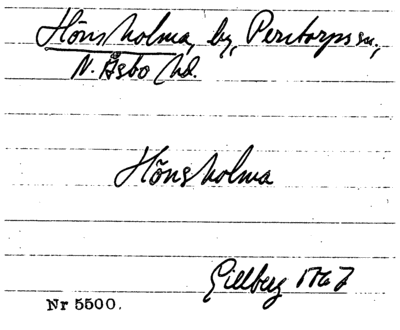 Hönsholma, by, Perstorps sn,
N. Åsbo hd.
Hönsholma
Gillberg 1767
Nr 5500.